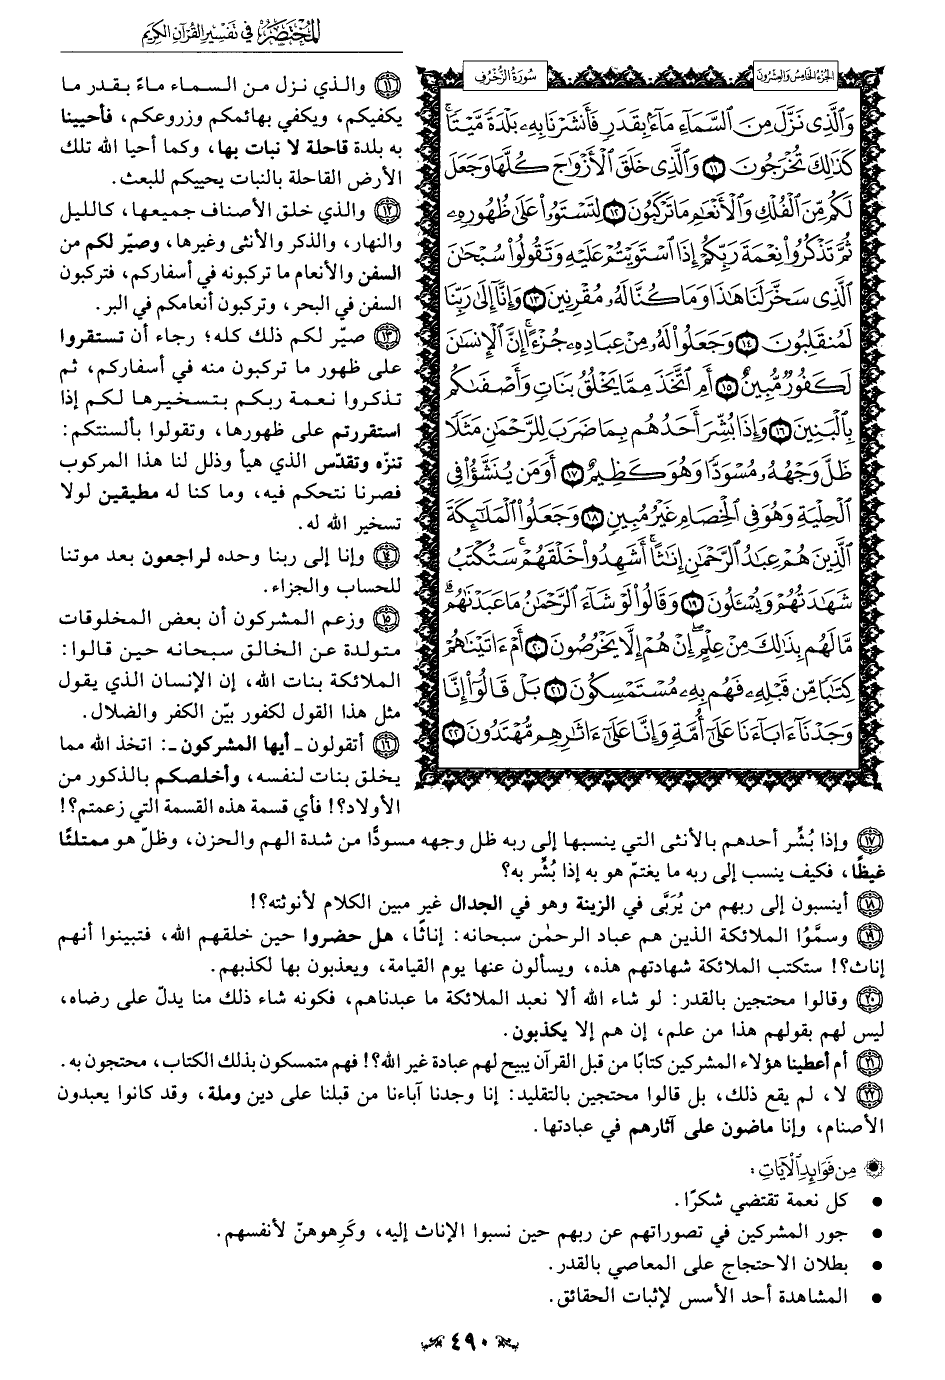 المختصر في تفسير القرآن الكريم
الجزء الخامس والعشرون
سورة الزخرف
وَٱلَّذِى نَزَّلَ مِنَ ٱلسَّمَآءِ مَآءًۢ بِقَدَرٍ فَأَنشَرْنَا بِهِۦ بَلْدَةً مَّيْتًا ۚ
كَذَٰلِكَ تُخْرَجُونَ ١١ وَٱلَّذِى خَلَقَ ٱلْأَزْوَٰجَ كُلَّهَا وَجَعَلَ
لَكُم مِّنَ ٱلْفُلْكِ وَٱلْأَنْعَٰمِ مَا تَرْكَبُونَ ١٢ لِتَسْتَوُۥا۟ عَلَىٰ ظُهُورِهِۦ
ثُمَّ تَذْكُرُوا۟ نِعْمَةَ رَبِّكُمْ إِذَا ٱسْتَوَيْتُمْ عَلَيْهِ وَتَقُولُوا۟ سُبْحَٰنَ
ٱلَّذِى سَخَّرَ لَنَا هَٰذَا وَمَا كُنَّا لَهُۥ مُقْرِنِينَ ١٣ وَإِنَّآ إِلَىٰ رَبِّنَا
لَمُنقَلِبُونَ ١٤ وَجَعَلُوا۟ لَهُۥ مِنْ عِبَادِهِۦ جُزْءًا ۚ إِنَّ ٱلْإِنسَٰنَ
لَكَفُورٌ مُّبِينٌ ١٥ أَمِ ٱتَّخَذَ مِمَّا يَخْلُقُ بَنَاتٍ وَأَصْفَىٰكُم
بِٱلْبَنِينَ ١٦ وَإِذَا بُشِّرَ أَحَدُهُم بِمَا ضَرَبَ لِلرَّحْمَٰنِ مَثَلًا
ظَلَّ وَجْهُهُۥ مُسْوَدًّا وَهُوَ كَظِيمٌ ١٧ أَوَمَن يُنَشَّؤُا۟ فِى
ٱلْحِلْيَةِ وَهُوَ فِى ٱلْخِصَامِ غَيْرُ مُبِينٍ ١٨ وَجَعَلُوا۟ ٱلْمَلَٰٓئِكَةَ
ٱلَّذِينَ هُمْ عِبَٰدُ ٱلرَّحْمَٰنِ إِنَٰثًا ۚ أَشَهِدُوا۟ خَلْقَهُمْ ۚ سَتُكْتَبُ
شَهَٰدَتُهُمْ وَيُسْـَٔلُونَ ١٩ وَقَالُوا۟ لَوْ شَآءَ ٱلرَّحْمَٰنُ مَا عَبَدْنَٰهُم ۗ
مَّا لَهُم بِذَٰلِكَ مِنْ عِلْمٍ ۖ إِنْ هُمْ إِلَّا يَخْرُصُونَ ٢٠ أَمْ ءَاتَيْنَٰهُمْ
كِتَٰبًا مِّن قَبْلِهِۦ فَهُم بِهِۦ مُسْتَمْسِكُونَ ٢١ بَلْ قَالُوٓا۟ إِنَّا
وَجَدْنَآ ءَابَآءَنَا عَلَىٰٓ أُمَّةٍ وَإِنَّا عَلَىٰٓ ءَاثَٰرِهِم مُّهْتَدُونَ ٢٢
١١ والذي نزل من السماء ماءً بقدر ما
يكفيكم، ويكفي بهائمكم وزروعكم، فأحيينا
به بلدة قاحلة لا نبات بها، وكما أحيا الله تلك
الأرض القاحلة بالنبات يحييكم للبعث.
١٢ والذي خلق الأصناف جميعها، كالليل
والنهار، والذكر والأنثى وغيرها، وصيّر لكم من
السفن والأنعام ما تركبونه في أسفاركم، فتركبون
السفن في البحر، وتركبون أنعامكم في البر.
١٣ صيّر لكم ذلك كله؛ رجاء أن تستقروا
على ظهور ما تركبون منه في أسفاركم، ثم
تذكروا نعمة ربكم بتسخيرها لكم إذا
استقررتم على ظهورها، وتقولوا بألسنتكم:
تنزه وتقدّس الذي هيأ وذلل لنا هذا المركوب
فصرنا نتحكم فيه، وما كنا له مطيقين لولا
تسخير الله له.
١٤ وإنا إلى ربنا وحده لراجعون بعد موتنا
للحساب والجزاء.
١٥ وزعم المشركون أن بعض المخلوقات
متولدة عن الخالق سبحانه حين قالوا:
الملائكة بنات الله، إن الإنسان الذي يقول
مثل هذا القول لكفور بيّن الكفر والضلال.
١٦ أتقولون - أيها المشركون -: اتخذ الله مما
يخلق بنات لنفسه، وأخلصكم بالذكور من
الأولاد؟! فأي قسمة هذه القسمة التي زعمتم؟!
١٧ وإذا بُشِّر أحدهم بالأنثى التي ينسبها إلى ربه ظل وجهه مسودًّا من شدة الهم والحزن، وظلّ هو ممتلئًا
غيظًا، فكيف ينسب إلى ربه ما يغتمّ هو به إذا بُشِّر به؟
١٨ أينسبون إلى ربهم من يُرَبَّى في الزينة وهو في الجدال غير مبين الكلام لأنوثته؟!
١٩ وسمَّوُا الملائكة الذين هم عباد الرحمٰن سبحانه: إناثًا، هل حضروا حين خلقهم الله، فتبينوا أنهم
إناث؟! ستكتب الملائكة شهادتهم هذه، ويسألون عنها يوم القيامة، ويعذبون بها لكذبهم.
٢٠ وقالوا محتجين بالقدر: لو شاء الله ألا نعبد الملائكة ما عبدناهم، فكونه شاء ذلك منا يدلّ على رضاه،
ليس لهم بقولهم هذا من علم، إن هم إلا يكذبون.
٢١ أم أعطينا هؤلاء المشركين كتابًا من قبل القرآن يبيح لهم عبادة غير الله؟! فهم متمسكون بذلك الكتاب، محتجون به.
٢٢ لا، لم يقع ذلك، بل قالوا محتجين بالتقليد: إنا وجدنا آباءنا من قبلنا على دين وملة، وقد كانوا يعبدون
الأصنام، وإنا ماضون على آثارهم في عبادتها.
من فوائد الآيات:
• كل نعمة تقتضي شكرًا.
• جور المشركين في تصوراتهم عن ربهم حين نسبوا الإناث إليه، وكَرِهوهنّ لأنفسهم.
• بطلان الاحتجاج على المعاصي بالقدر.
• المشاهدة أحد الأسس لإثبات الحقائق.
٤٩٠